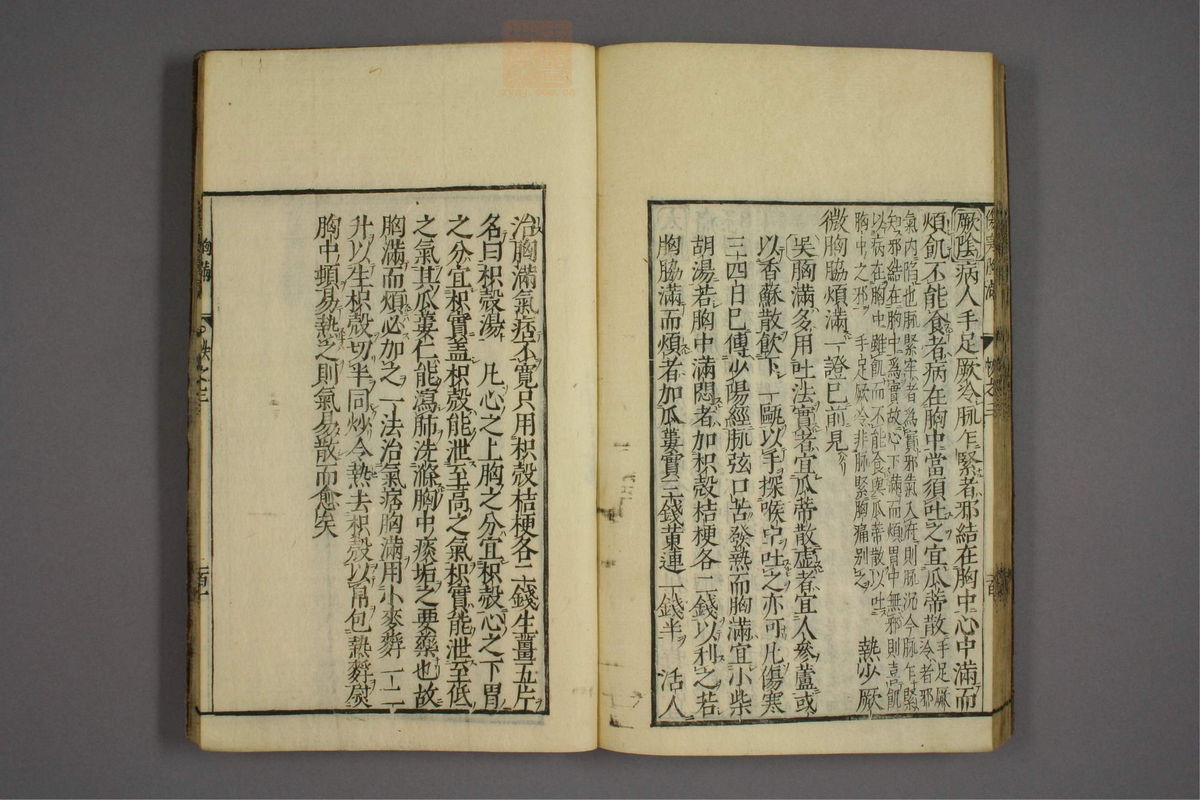 厥陰病人手足厥冷脉乍緊者邪結在胸中心中滿而
煩飢不能食者病在胸中當須吐之宜瓜蒂散手足厥
冷者邪
氣內陷也脉緊牢者為實邪氣入府則脉沉今脉乍緊
知邪結在胸中為實故心下滿而煩胃中無邪則喜飢
以病在胸中雖飢而不能食與瓜蒂散以吐
胸中之邪 手足厥冷非脉緊胸痛別之 熱少厥
微胸脇煩滿一證巳前見
吳胸滿多用吐法實者宜瓜蒂散虛者宜人參蘆或
以香蘇散飲下一甌以手探喉中吐之亦可凡傷寒
三四日巳傳少陽經脉弦口苦發熱而胸滿宜小柴
胡湯若胸中滿悶者加枳殼桔梗各二錢以利之若
胸脇滿而煩者加瓜蔞實三錢黃連一錢半 活人
治胸滿氣痞不寬只用枳殼桔梗各二錢生薑五片
名曰枳殼湯 凡心之上胸之分宜枳殼心之下胃
之分宜枳實盖枳殼能泄至高之氣枳實能泄至低
之氣其瓜蔞仁能瀉肺洗滌胸中痰垢之要藥也故
胸滿而煩必加之一法治氣病胸滿用小麥麩一二
升以生枳殼切半同炒令熱去枳殼以帛包熱麩熨
胸中頓易熱之則氣易散而愈矣
胸滿